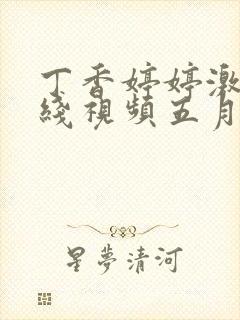 丁香婷婷激
綫視頻五月
星夢清河